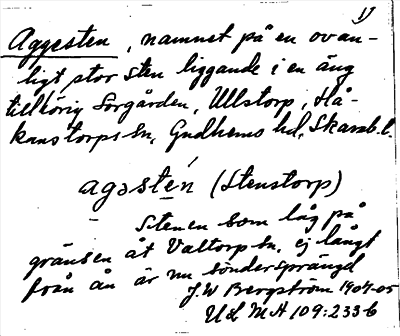 1)
Aggesten, namnet på en ovan-
ligt stor sten liggande i en äng
tillhörig Sorgården, Ullstorp, Hå-
kanstorps sn, Gudhems hd, Skarab. l.
agəstén (Stenstorp)
Stenen som låg på
gränsen åt Valtorp sn, ej långt
från ån är nu söndersprängd
J W Bergström 1904-05
ULMA 109:233 b